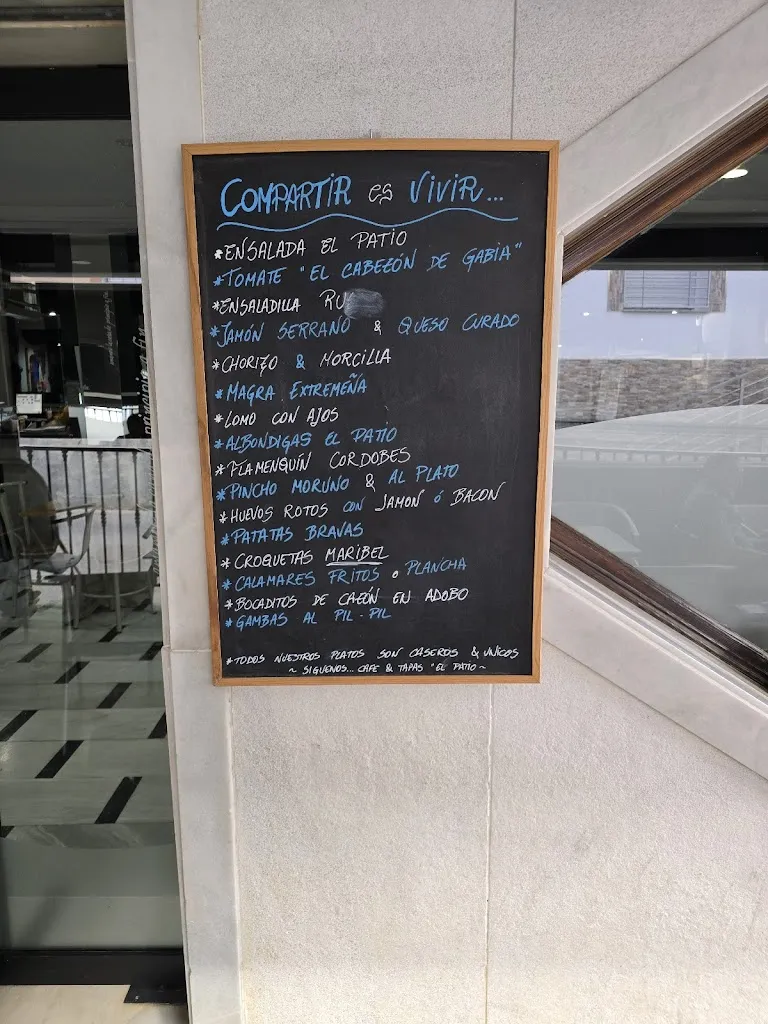 COMPARTIR es VIVIR...
*ENSALADA EL PATIO
*TOMATE "EL CABEZÓN DE GABIA"
*ENSALADILLA
*JAMÓN SERRANO & QUESO CURADO
*CHORIZO & MORCILLA
*MAGRA EXTREMEÑA
*LOMO CON AJOS
*ALBONDIGAS EL PATIO
*FLAMENQUÍN CORDOBES
*PINCHO MORUNO & AL PLATO
*HUEVOS ROTOS CON JAMON ó BACON
*PATATAS BRAVAS
*CROQUETAS MARIBEL
*CALAMARES FRITOS o PLANCHA
*BOCADITOS DE CAZÓN EN ADOBO
*GAMBAS AL PIL-PIL
*TODOS NUESTROS PLATOS SON CASEROS & UNICOS
~ SIGUENOS... CAFE & TAPAS "EL PATIO ~